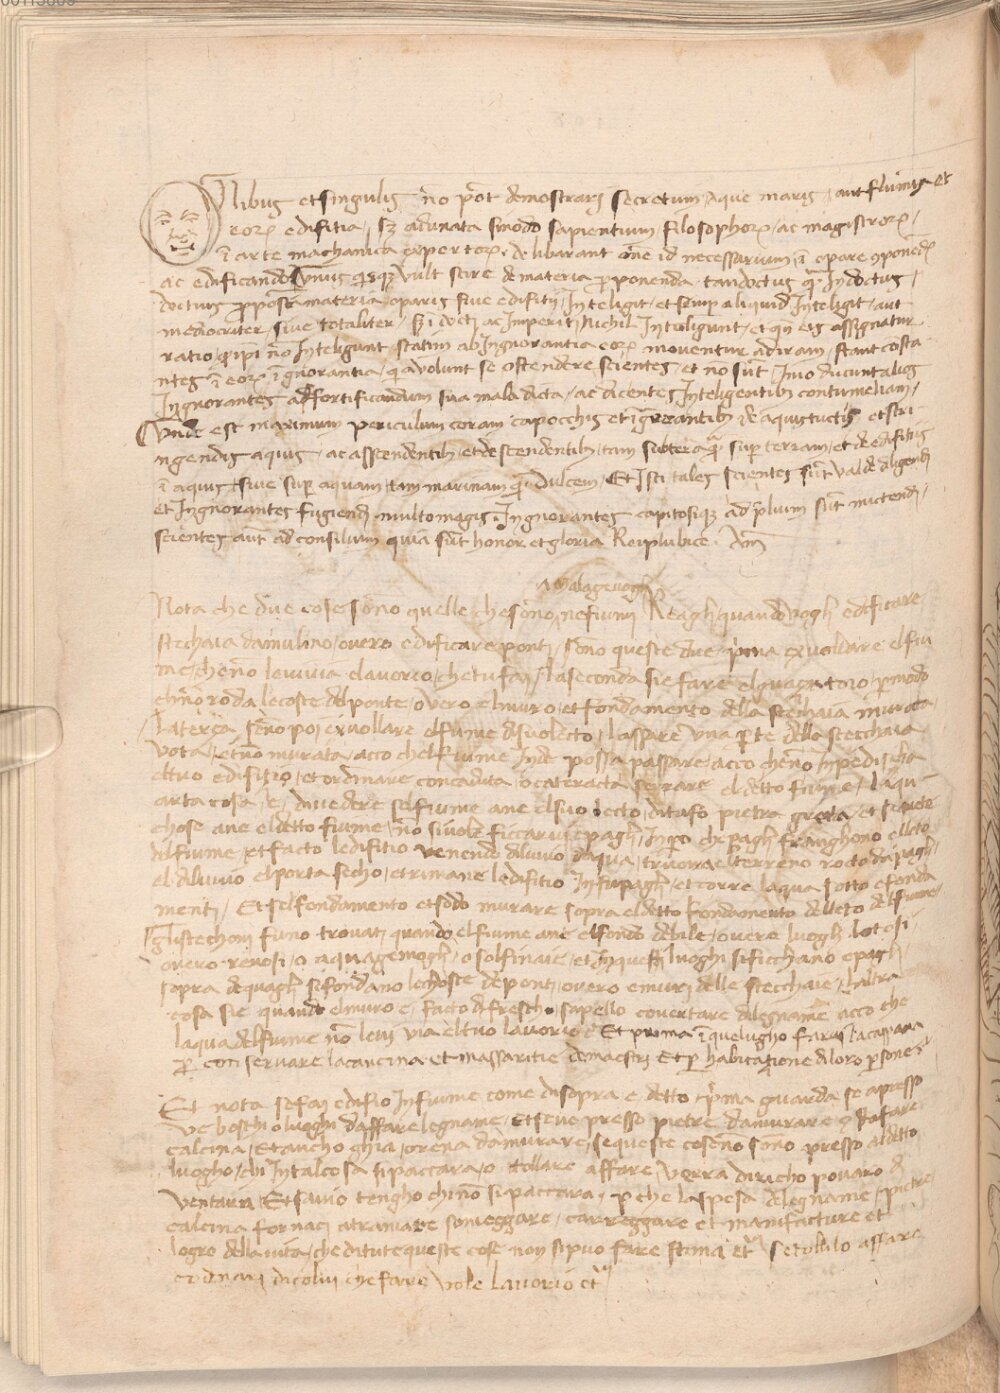 Olibus et singulis nō p̄ot demostrarj secretum aque maris / aut fluminis et
eorꝫ edifitia / sꝫ adunata sinodo sapientium / filosophorꝫ / ac magistrorꝫ /
ī arte machanica expertorꝫ · delibarant om̄e id necessarium / ī opare
ac edificando vnus q̄sqꝫ vult scire de materia proponenda · tandoctus q̄ Indoctus /
doctum materia oparis siue edifitij / Inteligit / et semp aliquid Inteligit / aut
mediocriter / siue totaliter / ac Imperitj Nichil Inteligunt / et eis assignatur
ratio / ipi nō Inteligunt statim ab Ingnorantia eorꝫ mouentur ad iram / stant costa
ntes ī eorꝫ ignorantia / volunt se ostendere scientes / et nō sūt Imō ducunt alios
Ingnorantes ad fortificandum sua mala dicta / ac dicentes Inteligentibꝫ contumeliam /
Vnde est maximum periculum coram capocchis et ignorantibꝫ de et stri
ngendis aquis / ac asscendentibꝫ / et descendentibꝫ / tam subtera q̄ sup terram / et de edifitijs
ī aquis / siue sup aquam / tam marinam q̄ dulcem / Et Isti tales scientes sūt valde diligendj
et Ingnorantes fugiendj multo magis · Ingnorantes capitosiqꝫ ad p̄lium sūt mictendj /
scientes aūt ad consilium quia sūt honor et gloria Reiplubice · Am̄
Malageuogli
Nota che due cose sōno quelle che sōno nefiumj Reaglj quando voglj edificare
stechaia da mulino / ouero edificare pontj / sōno queste due / prima exuoltare el fiu
me / che nō leui via el auorio che tu faj / la seconda sie fare el p modo
che nō roda le coste del ponte / o vero el muro / et fondamento della stechaia murata /
la terça senō poi exuoltare el fiume di suo lecto / lasspare vna pte della stecchaia
vota / et nō murata / acco chel fiume Inde possa passare / acco che nō Impedischa
el tuo edifitio / et ordinare con caduta / o cateracta serrare el detto fiume / la qu
arta cosa / e / di vedere sel fiume ane el suo lecto / di tufo pietra greta / et se
chose ane el detto fiume / nō si vole ficcarui e paglj / Inpo che paglj franghono el leto
del fiume / et facto l edifitio venendo diluuio daqua / truoua el terreno rocto da paglj /
el diluuio el porta secho / et rimane l edifitio In su paglj / et corre laqua sotto e fonda
mentj / Et sel fondamento e sodo murare sopra el detto fondamento del leto del fiume /
gli stechonj funo trouatj quando el fiume ane el fondo debile / ouero luoglj lotosi /
ouero renosi / o aquagemoglj / o solfinaie / et In questi luoghi si ficchano e paglj
sopra de quaglj si fondano le choste de pontj / ouero e murj delle stecchaie / laltra
cosa sie quando el muro e / facto di frescho / sapello couertare di legname / acco che
laqua del fiume nō leui via el tuo lauorio / Et prima ī quel lugho farai la capanna
p conseruare la calcina et massaritie de maestrj Et p habitatione di loro psone /
Et nota se faj edifio In fiume come disopra e detto / prima guarda se apresso
ve boschi o luoghi daffare legname / et seue presso pietre da murare o da fare
calcina / et ancho ghia / o rena da murare / se queste cose nō sōno presso al detto
luogho / chi In tal cosa si paccara / o tollare affare verra di richo pouaro di
ventara / Et sauio tengho chi nō si paccara / p che la spesa de legname / pietre
calcina fornacj atraniare someggare / carreggare et manifacture et
logro della uita / che di tute queste cose non si puo fare stima etᶜ Se tollulo affare
ordinarj di colui che fare vole lauorio etᶜ